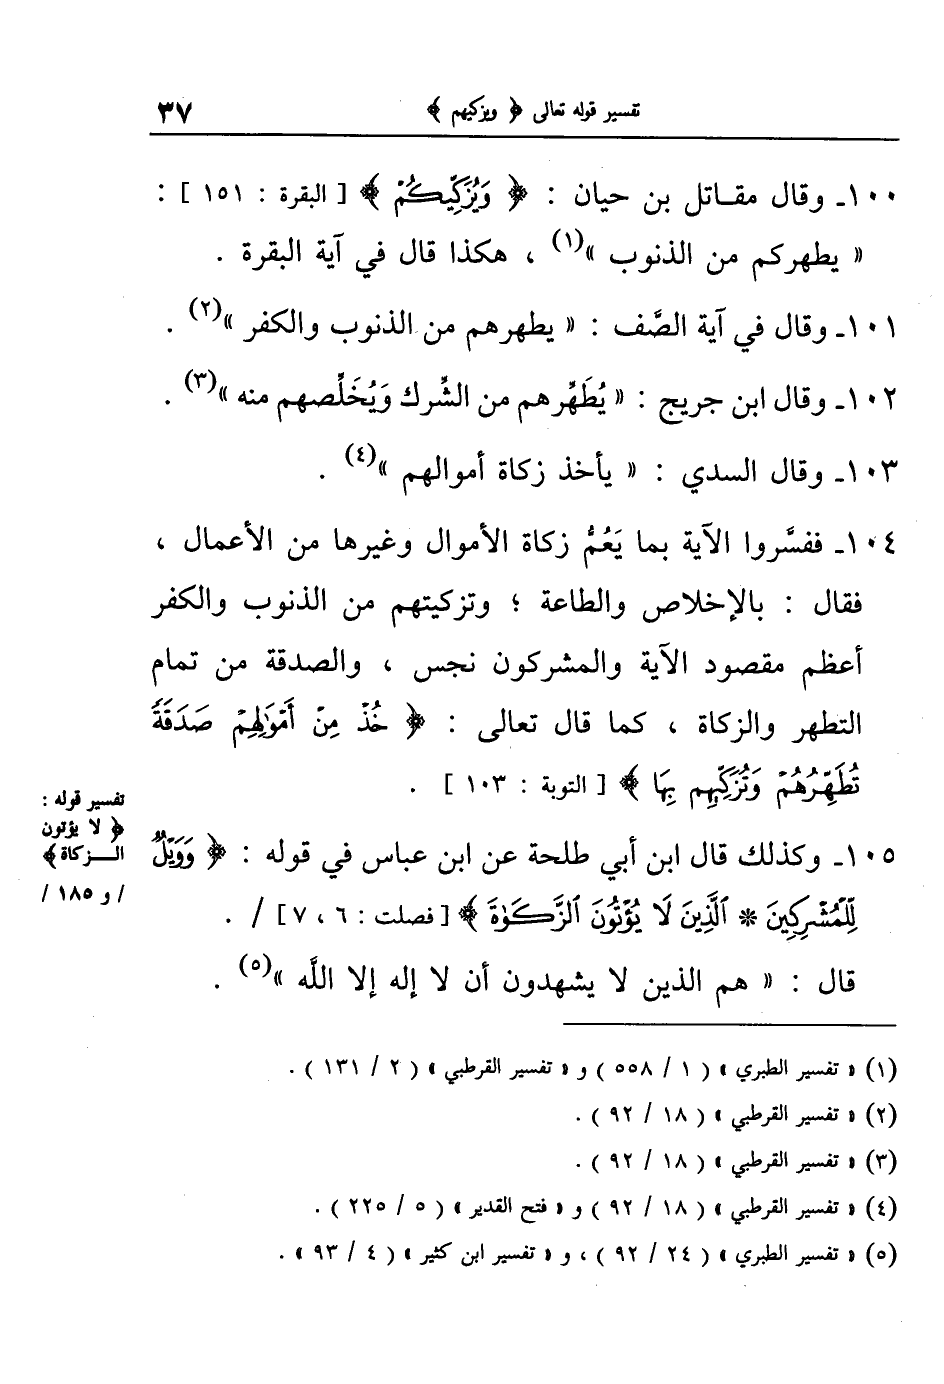 تفسير قوله تعالى ﴿ ويزكيهم ﴾ ٣٧
١٠٠ـ وقال مقـاتل بن حيان : ﴿ وَيُزَكِّيكُمْ ﴾ [ البقرة : ١٥١ ] :
« يطهركم من الذنوب »(١) ، هكذا قال في آية البقرة .
١٠١ـ وقال في آية الصَّف : « يطهرهم من الذنوب والكفر »(٢) .
١٠٢ـ وقال ابن جريج : « يُطَهِّرهم من الشِّرك وَيُخَلِّصهم منه »(٣) .
١٠٣ـ وقال السدي : « يأخذ زكاة أموالهم »(٤) .
١٠٤ـ ففسَّروا الآية بما يَعُمُّ زكاة الأموال وغيرها من الأعمال ،
فقال : بالإخلاص والطاعة ؛ وتزكيتهم من الذنوب والكفر
أعظم مقصود الآية والمشركون نجس ، والصدقة من تمام
التطهر والزكاة ، كما قال تعالى : ﴿ خُذْ مِنْ أَمْوَٰلِهِمْ صَدَقَةً
تُطَهِّرُهُمْ وَتُزَكِّيهِم بِهَا ﴾ [ التوبة : ١٠٣ ] .
١٠٥ـ وكذلك قال ابن أبي طلحة عن ابن عباس في قوله : ﴿ وَوَيْلٌ
لِّلْمُشْرِكِينَ * ٱلَّذِينَ لَا يُؤْتُونَ ٱلزَّكَوٰةَ ﴾ [ فصلت : ٦ ، ٧ ] / .
قال : « هم الذين لا يشهدون أن لا إله إلا اللَّه »(٥) .
تفسير قوله :
﴿ لا يؤتون
الـــزكاة ﴾
/ و ١٨٥ /
(١) « تفسير الطبري » ( ١ / ٥٥٨ ) و « تفسير القرطبي » ( ٢ / ١٣١ ) .
(٢) « تفسير القرطبي » ( ١٨ / ٩٢ ) .
(٣) « تفسير القرطبي » ( ١٨ / ٩٢ ) .
(٤) « تفسير القرطبي » ( ١٨ / ٩٢ ) و « فتح القدير » ( ٥ / ٢٢٥ ) .
(٥) « تفسير الطبري » ( ٢٤ / ٩٢ ) ، و « تفسير ابن كثير » ( ٤ / ٩٣ » .